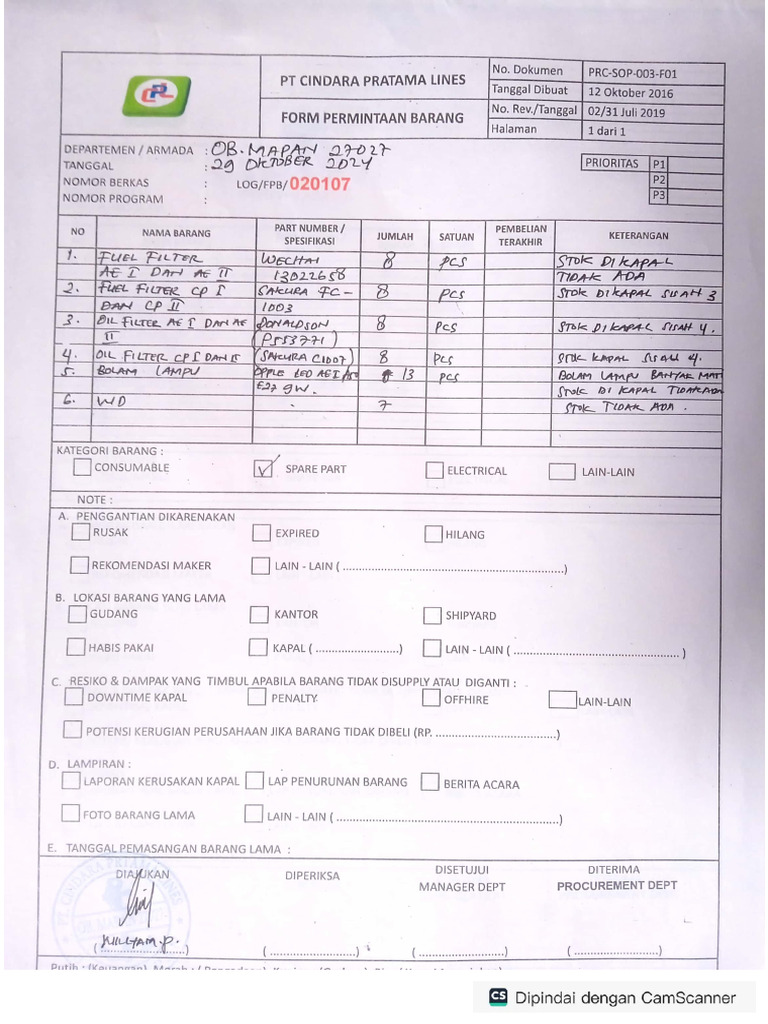 CPL
PT CINDARA PRATAMA LINES
FORM PERMINTAAN BARANG
No. Dokumen PRC-SOP-003-F01
Tanggal Dibuat 12 Oktober 2016
No. Rev./Tanggal 02/31 Juli 2019
Halaman 1 dari 1
DEPARTEMEN / ARMADA : OB. MAPAN 27027
TANGGAL : 29 OKTOBER 2024
NOMOR BERKAS : LOG/FPB/020107
NOMOR PROGRAM :
PRIORITAS P1
P2
P3
NO NAMA BARANG PART NUMBER / SPESIFIKASI JUMLAH SATUAN PEMBELIAN TERAKHIR KETERANGAN
1. FUEL FILTER WECHAI 8 PCS STOK DI KAPAL
AE I DAN AE II 13022658 TIDAK ADA
2. FUEL FILTER CP I SAKURA FC- 8 PCS STOK DI KAPAL SISAH 3
DAN CP II 1003
3. OIL FILTER AE I DAN AE DONALDSON 8 PCS STOK DI KAPAL SISAH 4.
II (P553771)
4. OIL FILTER CP I DAN II (SAKURA C1007) 8 PCS STOK KAPAL SISAH 4.
5. BOLAM LAMPU OPPLE LED 13 PCS BOLAM LAMPU BANYAK MATI
E27 9W. STOK DI KAPAL TIDAK ADA
6. WD . 7 STOK TIDAK ADA .
KATEGORI BARANG :
CONSUMABLE ✓ SPARE PART ELECTRICAL LAIN-LAIN
NOTE :
A. PENGGANTIAN DIKARENAKAN
RUSAK EXPIRED HILANG
REKOMENDASI MAKER LAIN - LAIN ( ............................................................)
B. LOKASI BARANG YANG LAMA
GUDANG KANTOR SHIPYARD
HABIS PAKAI KAPAL ( .......................) LAIN - LAIN ( ............................................. )
C. RESIKO & DAMPAK YANG TIMBUL APABILA BARANG TIDAK DISUPPLY ATAU DIGANTI :
DOWNTIME KAPAL PENALTY OFFHIRE LAIN-LAIN
POTENSI KERUGIAN PERUSAHAAN JIKA BARANG TIDAK DIBELI (RP. .................................)
D. LAMPIRAN :
LAPORAN KERUSAKAN KAPAL LAP PENURUNAN BARANG BERITA ACARA
FOTO BARANG LAMA LAIN - LAIN ( ............................................................)
E. TANGGAL PEMASANGAN BARANG LAMA :
DIAJUKAN DIPERIKSA DISETUJUI MANAGER DEPT DITERIMA PROCUREMENT DEPT
PT. CINDARA PRATAMA LINES
(WILLIAM.P.) (........................) (........................) (........................)
CS Dipindai dengan CamScanner